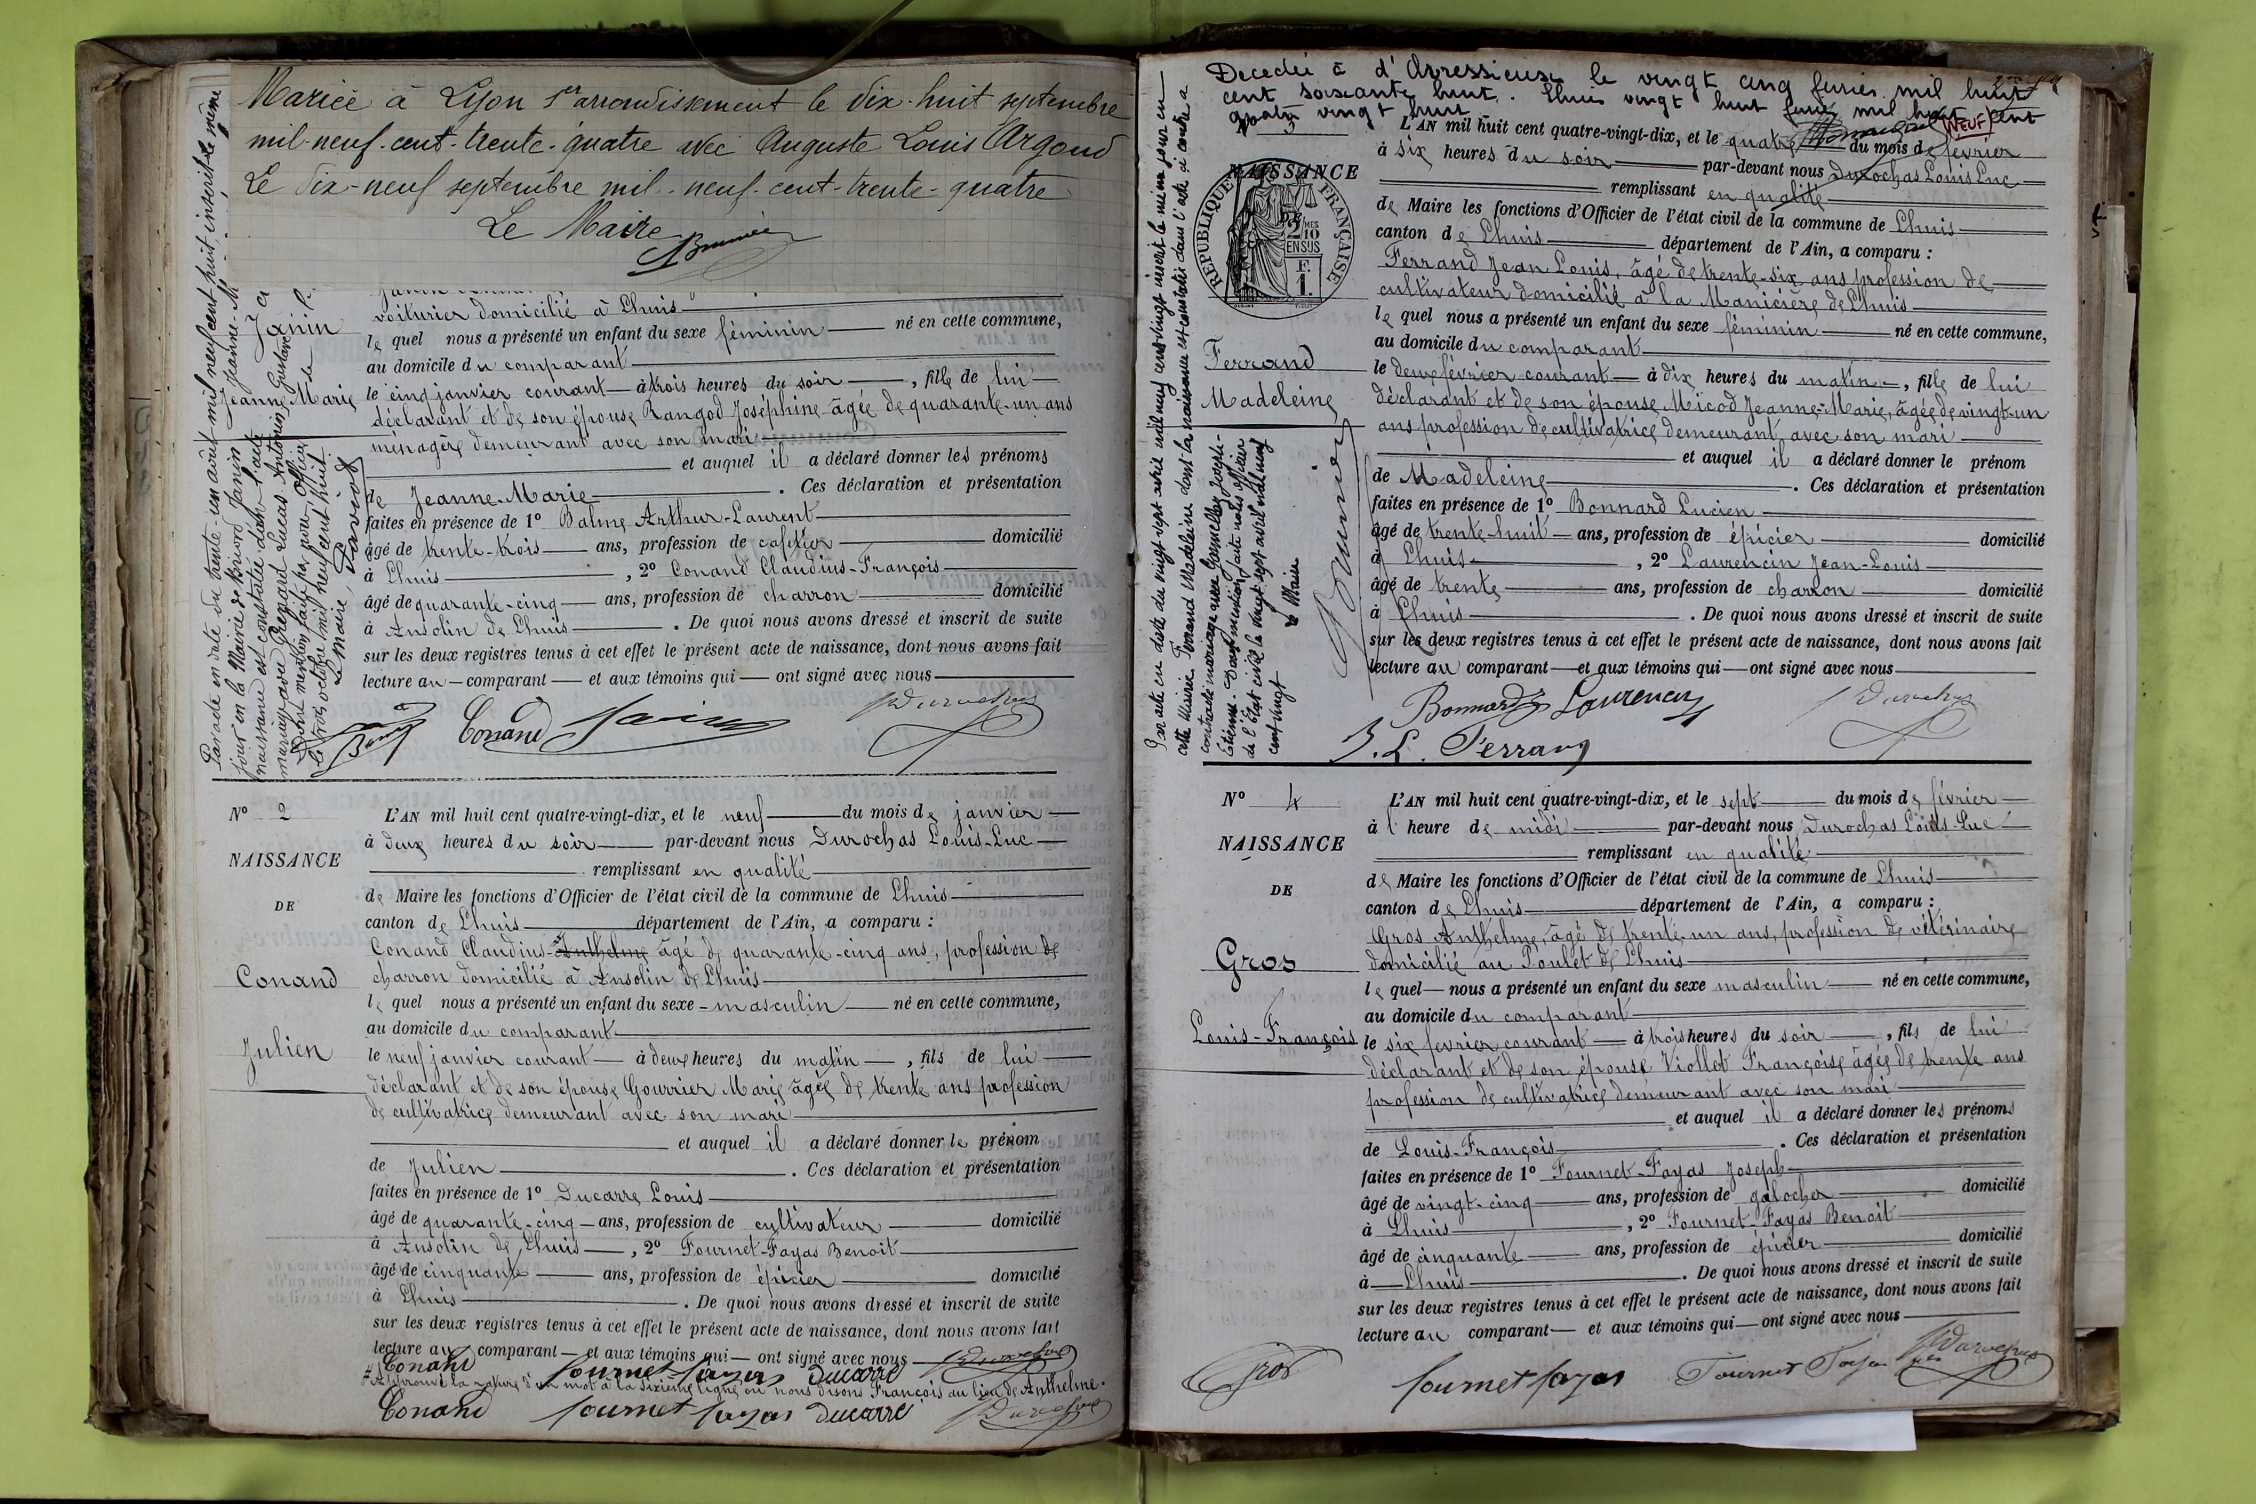 Mariée à Lyon 1er arrondissement le dix-huit septembre
mil-neuf-cent-trente-quatre avec Auguste Louis Argoud
Le dix-neuf septembre mil-neuf-cent-trente-quatre
Le Maire
voiturier domicilié à Lhuis
Janin
le quel nous a présenté un enfant du sexe féminin né en cette commune,
au domicile du comparant
Jeanne Marie
le cinq janvier courant à trois heures du soir, fille de lui
déclarant et de son épouse Rangod Joséphine âgée de quarante-un ans
ménagère demeurant avec son mari
et auquel il a déclaré donner les prénoms
de Jeanne-Marie. Ces déclaration et présentation
faites en présence de 1° Balme Arthur-Laurent
âgé de trente-trois ans, profession de cafetier domicilié
à Lhuis, 2° Conand Claudius-François
âgé de quarante-cinq ans, profession de charron domicilié
à Ansolin de Lhuis. De quoi nous avons dressé et inscrit de suite
sur les deux registres tenus à cet effet le présent acte de naissance, dont nous avons fait
lecture au comparant et aux témoins qui ont signé avec nous
Conand Janin Durochas
Par acte en date du trente-un août mil neuf cent huit, inscrit le même
jour en la Mairie de Briord Janin Jeanne M
naissance est constatée dans l'acte
mariage avec Grenard Lucas Antonin Gustave
Dont mention faite par nous officier
mil neuf cent huit
Le Maire,
N° 2
NAISSANCE
DE
Conand
Julien
L'AN mil huit cent quatre-vingt-dix, et le neuf du mois de janvier
à deux heures du soir par-devant nous Durochas Louis-Luc
remplissant en qualité
de Maire les fonctions d'Officier de l'état civil de la commune de Lhuis
canton de Lhuis département de l'Ain, a comparu :
Conand Claudius-Anthelme âgé de quarante-cinq ans, profession de
charron domicilié à Ansolin de Lhuis
le quel nous a présenté un enfant du sexe masculin né en cette commune,
au domicile du comparant
le neuf janvier courant à deux heures du matin, fils de lui
déclarant et de son épouse Gourrier Marie âgée de trente ans profession
de cultivatrice demeurant avec son mari
et auquel il a déclaré donner le prénom
de Julien. Ces déclaration et présentation
faites en présence de 1° Ducarre Louis
âgé de quarante-cinq ans, profession de cultivateur domicilié
à Ansolin de Lhuis, 2° Fournet-Fayas Benoit
âgé de cinquante ans, profession de épicier domicilié
à Lhuis. De quoi nous avons dressé et inscrit de suite
sur les deux registres tenus à cet effet le présent acte de naissance, dont nous avons fait
lecture au comparant et aux témoins qui ont signé avec nous
Conand Fournet fayas Ducarre Durochas
Approuvé la rature d'un mot à la sixième ligne où nous disons François au lieu de Anthelme.
Conand fournet fayas Ducarre Durochas
Decedée à d'Arressieux le vingt cinq fevrier mil huit
cent soixante huit. Lhuis vingt huit fevrier mil huit cent
NEUF
quatre vingt huit
3
NAISSANCE
DE
RÉPUBLIQUE FRANÇAISE
2/10 MES
EN SUS
F.
1.
Ferrand
Madeleine
L'AN mil huit cent quatre-vingt-dix, et le quatre du mois de février
à six heures du soir par-devant nous Durochas Louis Luc
remplissant en qualité
de Maire les fonctions d'Officier de l'état civil de la commune de Lhuis
canton de Lhuis département de l'Ain, a comparu :
Ferrand Jean Louis, âgé de trente-six ans profession de
cultivateur domicilié à la Manicière de Lhuis
le quel nous a présenté un enfant du sexe féminin né en cette commune,
au domicile du comparant
le deux février courant à dix heures du matin, fille de lui
déclarant et de son épouse Micod Jeanne-Marie, âgée de vingt-un
ans profession de cultivatrice demeurant avec son mari
et auquel il a déclaré donner le prénom
de Madeleine. Ces déclaration et présentation
faites en présence de 1° Bonnard Lucien
âgé de trente-huit ans, profession de épicier domicilié
à Lhuis, 2° Laurencin Jean-Louis
âgé de trente ans, profession de charron domicilié
à Lhuis. De quoi nous avons dressé et inscrit de suite
sur les deux registres tenus à cet effet le présent acte de naissance, dont nous avons fait
lecture au comparant et aux témoins qui ont signé avec nous
Bonnard Laurencin Durochas
J. L. Ferrand
Par acte en date du vingt sept avril mil neuf cent vingt inscrit le même jour en
cette Mairie Ferrand Madeleine dont la naissance est constatée dans l'acte ci contre a
contracté mariage avec
Etienne. Dont mention faite nous officier
de l'Etat civil le vingt sept avril mil neuf
cent vingt
Le Maire
N° 4
NAISSANCE
DE
Gros
Louis-François
L'AN mil huit cent quatre-vingt-dix, et le sept du mois de février
à l'heure de midi par-devant nous Durochas Louis-Luc
remplissant en qualité
de Maire les fonctions d'Officier de l'état civil de la commune de Lhuis
canton de Lhuis département de l'Ain, a comparu :
Gros Anthelme, âgé de trente un ans, profession de vétérinaire
domicilié au Poulet de Lhuis
le quel nous a présenté un enfant du sexe masculin né en cette commune,
au domicile du comparant
le six fevrier courant à trois heures du soir, fils de lui
déclarant et de son épouse Viollet Françoise âgée de trente ans
profession de cultivatrice demeurant avec son mari
et auquel il a déclaré donner les prénoms
de Louis-François. Ces déclaration et présentation
faites en présence de 1° Fournet-Fayas Joseph
âgé de vingt-cinq ans, profession de galocher domicilié
à Lhuis, 2° Fournet-Fayas Benoit
âgé de cinquante ans, profession de épicier domicilié
à Lhuis. De quoi nous avons dressé et inscrit de suite
sur les deux registres tenus à cet effet le présent acte de naissance, dont nous avons fait
lecture au comparant et aux témoins qui ont signé avec nous
Gros fournet fayas Fournet Fayas Durochas